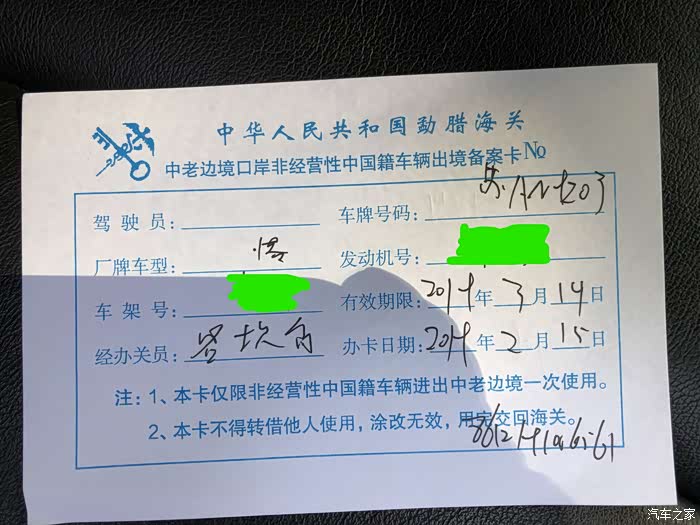 中华人民共和国勐腊海关
中老边境口岸非经营性中国籍车辆出境备案卡 No
驾驶员： 车牌号码：
厂牌车型： 发动机号：
车架号： 有效期限：2019年3月14日
经办关员： 办卡日期：2019年2月15日
注：1、本卡仅限非经营性中国籍车辆进出中老边境一次使用。
2、本卡不得转借他人使用，涂改无效，用完交回海关。
汽车之家